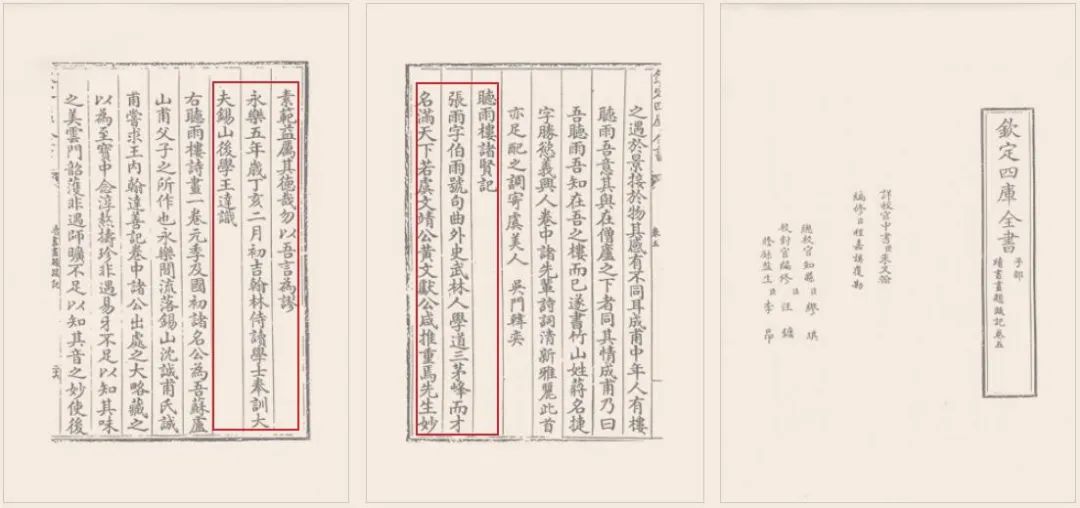 欽定四庫全書
子部
續書畫題跋記卷五
詳校官中書臣朱文翰
編修臣程嘉謨覆勘
總校官知縣臣繆琪
校對官編修臣汪鏞
謄錄監生臣李昂
之遇於景接於物其感有不同耳成甫中年人有樓
聽雨吾意其與在僧廬之下者同其情成甫乃曰
吾聽雨吾知在吾之樓而已遂書竹山姓蔣名捷
字勝慾義興人卷中諸先輩詩詞清新雅麗此首
亦足配之調寄虞美人 吳門韓奕
聽雨樓諸賢記
張雨字伯雨號句曲外史武林人學道三茅峰而才
名滿天下若虞文靖公黃文獻公咸推重焉先生妙
素範益厲其德哉勿以吾言為謬
永樂五年歲丁亥二月初吉翰林侍讀學士奉訓大
夫錫山後學王達識
右聽雨樓詩畫一卷元季及國初諸名公為吾蘇盧
山甫父子之所作也永樂間流落錫山沈誠甫氏誠
甫嘗求王內翰達善記卷中諸公出處之大略藏之
以為至寶中念淳熬擣珍非遇易牙不足以知其味
之美雲門韶濩非遇師曠不足以知其音之妙使後